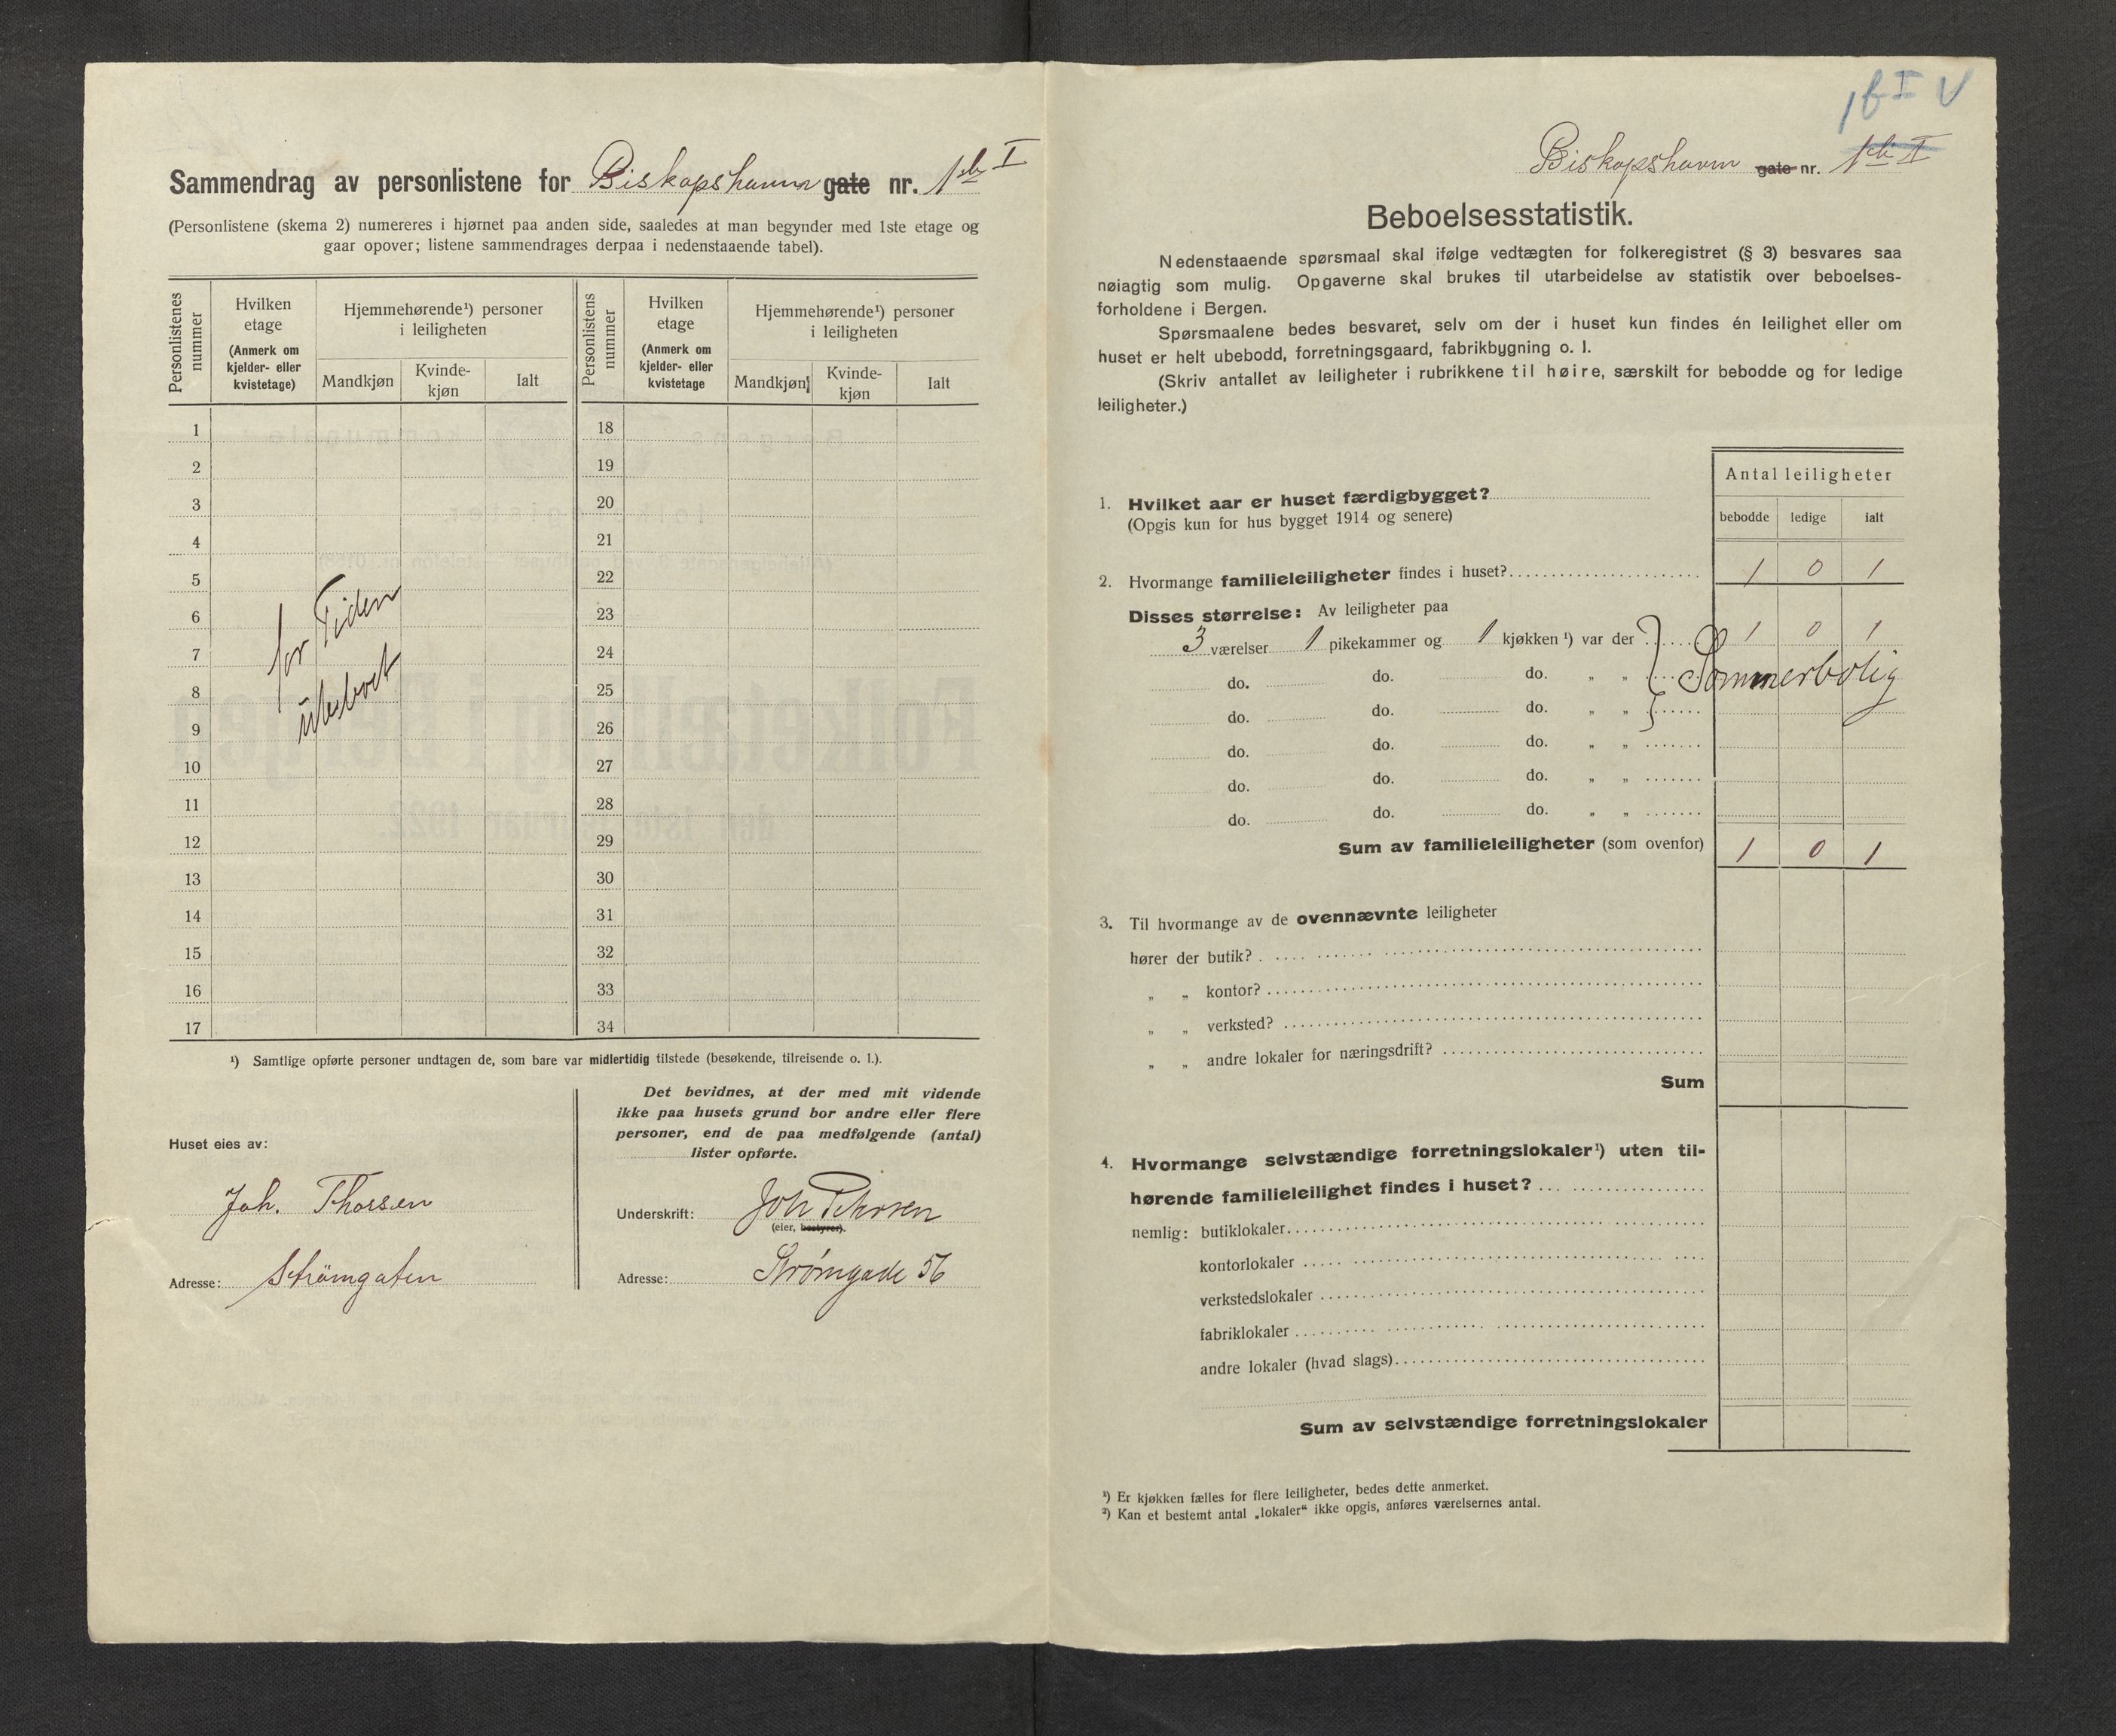 Sammendrag av personlistene for Biskopshavn gate nr. 1 b I
(Personlistene (skema 2) numereres i hjørnet paa anden side, saaledes at man begynder med 1ste etage og
gaar opover; listene sammendrages derpaa i nedenstaaende tabel).
Personlistenes nummer
Hvilken etage (Anmerk om kjelder- eller kvistetage)
Hjemmehørende¹) personer i leiligheten
Mandkjøn Kvinde-kjøn Ialt
Personlistens nummer
Hvilken etage (Anmerk om kjelder- eller kvistetage
Hjemmehørende¹) personer i leiligheten
Mandkjøn Kvinde-kjøn Ialt
1 18
2 19
3 20
4 21
5 22
6 23
7 24
8 25
9 26
10 27
11 28
12 29
13 30
14 31
15 32
16 33
17 34
for Tiden
ubeboet
¹) Samtlige opførte personer undtagen de, som bare var midlertidig tilstede (besøkende, tilreisende o. l.).
Huset eies av:
Joh. Thorsen
Adresse: Strömgaten
Det bevidnes, at der med mit vidende
ikke paa husets grund bor andre eller flere
personer, end de paa medfølgende (antal)
lister opførte.
Underskrift: Joh Thorsen
(eier, bestyrer).
Adresse: Strømgade 56
1 b I V
Biskopshavn gate nr. 1 b I
Beboelsesstatistik.
Nedenstaaende spørsmaal skal ifølge vedtægten for folkeregistret (§ 3) besvares saa
nøiagtig som mulig. Opgaverne skal brukes til utarbeidelse av statistik over beboelses-
forholdene i Bergen.
Spørsmaalene bedes besvaret, selv om der i huset kun findes én leilighet eller om
huset er helt ubebodd, forretningsgaard, fabrikbygning o. l.
(Skriv antallet av leiligheter i rubrikkene til høire, særskilt for bebodde og for ledige
leiligheter.)
Antal leiligheter
bebodde ledige ialt
1. Hvilket aar er huset færdigbygget?
(Opgis kun for hus bygget 1914 og senere)
2. Hvormange familieleiligheter findes i huset? 1 0 1
Disses størrelse: Av leiligheter paa
3 værelser 1 pikekammer og 1 kjøkken ¹) var der 1 0 1
do. do. do. „ „ Sommerbolig
do. do. do. „ „
do. do. do. „ „
do. do. do. „ „
do. do. do. „ „
Sum av familieleiligheter (som ovenfor) 1 0 1
3. Til hvormange av de ovennævnte leiligheter
hører der butik?
„ „ kontor?
„ „ verksted?
„ „ andre lokaler for næringsdrift?
Sum
4. Hvormange selvstændige forretningslokaler¹) uten til-
hørende familieleilighet findes i huset?
nemlig: butiklokaler
kontorlokaler
verkstedslokaler
fabriklokaler
andre lokaler (hvad slags)
Sum av selvstændige forretningslokaler
¹) Er kjøkken fælles for flere leiligheter, bedes dette anmerket.
²) Kan et bestemt antal „lokaler“ ikke opgis, anføres værelsernes antal.